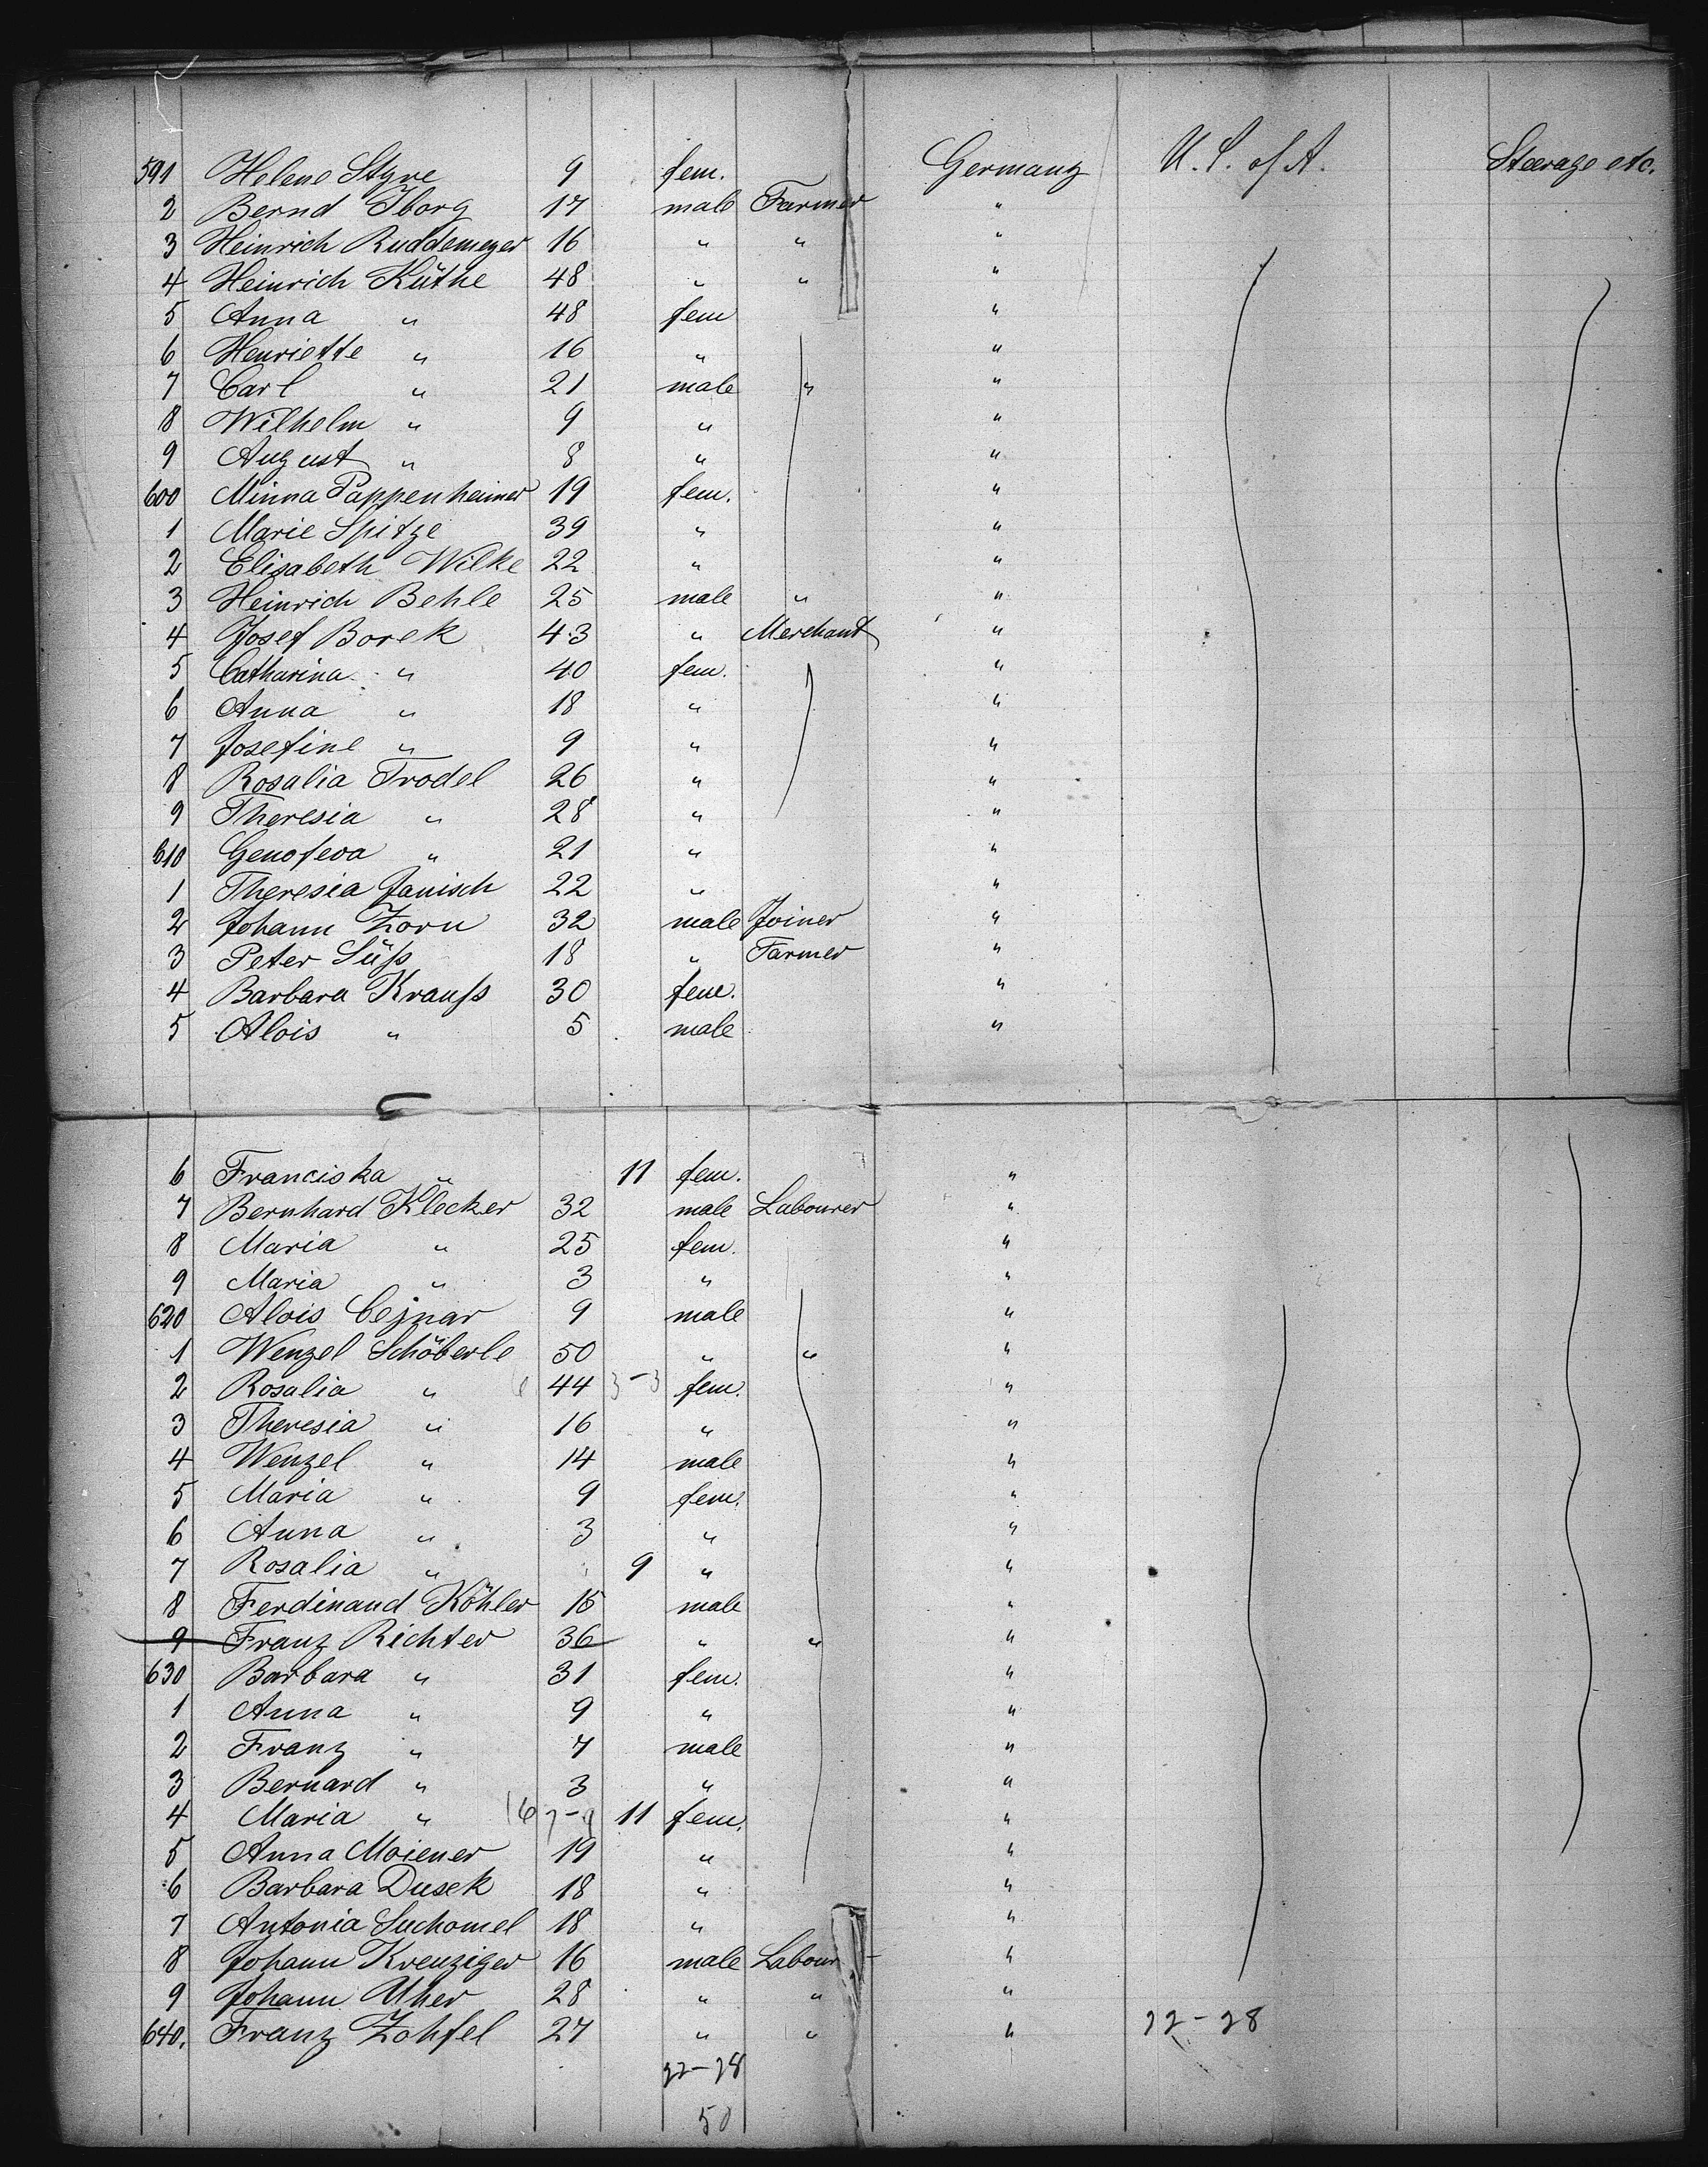 591 Helene Styre 9 fem. Germany U. S. of A. Steerage etc.
2 Bernd Iborg 17 male Farmer "
3 Heinrich Ruddemeyer 16 " " "
4 Heinrich Küthe 48 " " "
5 Anna " 48 fem "
6 Henriette " 16 " "
7 Carl " 21 male " "
8 Wilhelm " 9 " "
9 August " 8 " "
600 Minna Pappenheimer 19 fem. "
1 Marie Spitze 39 " "
2 Elisabeth Wilke 22 " "
3 Heinrich Behle 25 male " "
4 Josef Borek 43 " Merchant "
5 Catharina " 40 fem. "
6 Anna " 18 " "
7 Josefine " 9 " "
8 Rosalia Trodel 26 " "
9 Theresia " 28 " "
610 Genofeva " 21 " "
1 Theresia Janisch 22 " "
2 Johann Zorn 32 male Joiner "
3 Peter Süß 18 " Farmer "
4 Barbara Krauß 30 fem. "
5 Alois " 5 male "
6 Franciska " 11 fem. "
7 Bernhard Klecker 32 male Labourer "
8 Maria " 25 fem. "
9 Maria " 3 " "
620 Alois Cejnar 9 male "
1 Wenzel Schöberle 50 " " "
2 Rosalia " 44 3-3 fem. "
3 Theresia " 16 " "
4 Wenzel " 14 male "
5 Maria " 9 fem. "
6 Anna " 3 " "
7 Rosalia " 9 " "
8 Ferdinand Köhler 15 male "
9 Franz Richter 36 " " "
630 Barbara " 31 fem. "
1 Anna " 9 " "
2 Franz " 7 male "
3 Bernard " 3 " "
4 Maria " 11 fem. "
5 Anna Moiener 19 " "
6 Barbara Dusek 18 " "
7 Antonia Suchomel 18 " "
8 Johann Kreuziger 16 male Labour "
9 Johann Uher 28 " " "
640. Franz Zohfel 27 " " " 22-28
22-28
50